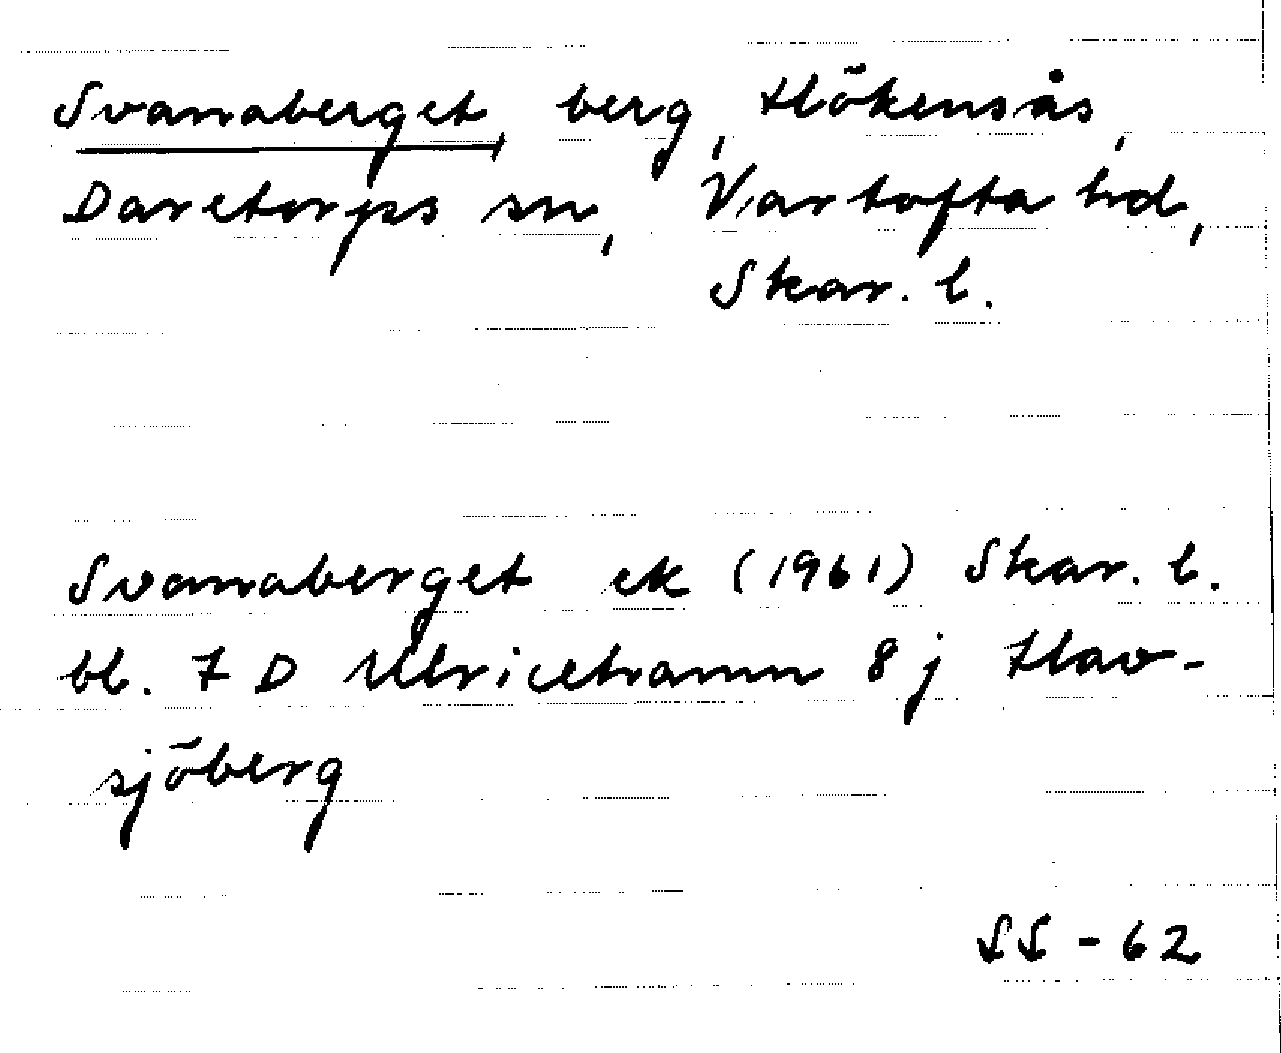 Svanaberget, berg, Hökensås,
Daretorps sn, Vartofta hd,
Skar. l.
Svanaberget ek (1961) Skar. l.
bl. 7 D Ulricehamn 8 j Hav-
sjöberg
SS - 62